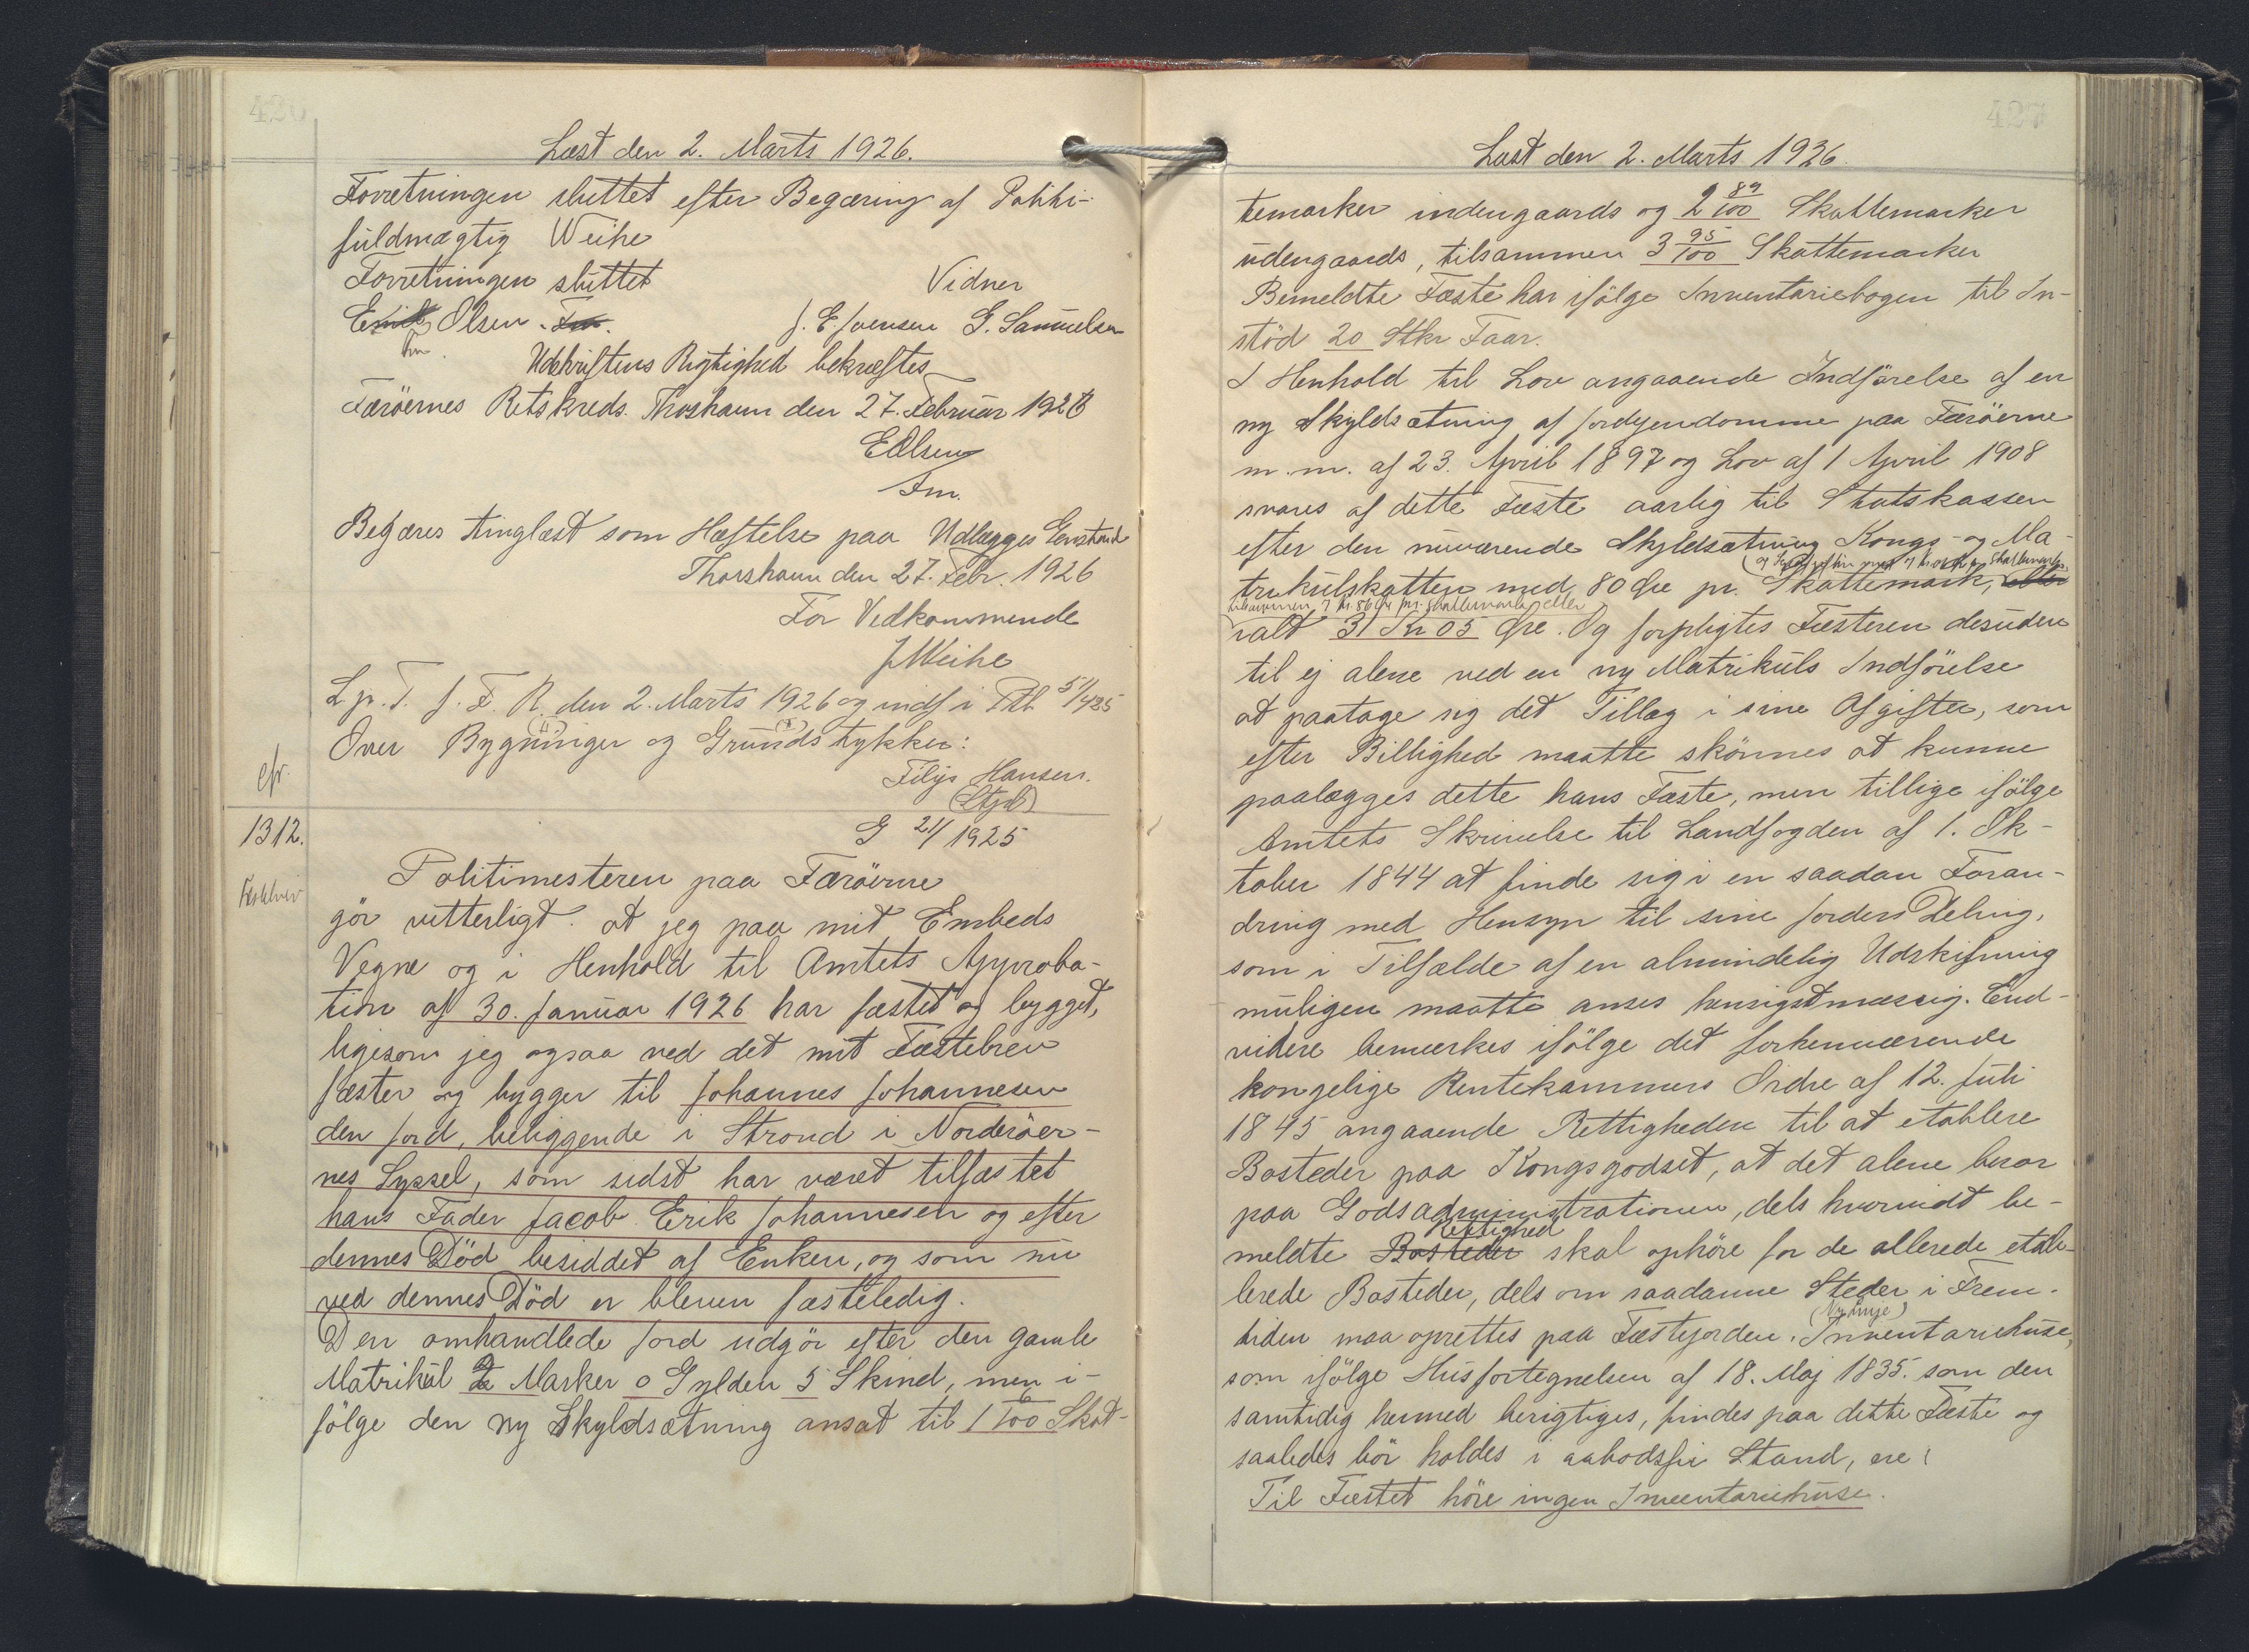 426
Læst den 2. Marts 1926.
Forretningen sluttet efter Begæring af Politi-
fuldmægtig Weihe
Forretningen sluttet
Vidner
Olsen
J. E. Joensen G. Samuelsen
Fm.
Udskriftens Rigtighed bekræftes
Færöernes Retskreds. Thorshavn den 27. Februar 1926
EOlsen
Fm.
Begæres tinglæst som Hæftelse paa Udlægges Genstand
Thorshavn den 27. Febr. 1926
For Vedkommende
JWeihe
L p. T. f. F. R. den 2. Marts 1926 og indf i Ptb 51/425
Over Bygninger og Grundstykker:
Filip Hansen.
efr.
1312.
G 21/1925
Politimesteren paa Færöerne
gör vitterligt at jeg paa mit Embeds
Vegne og i Henhold til Amtets Approba-
tion af 30. Januar 1926 har fæstet og bygget,
ligesom jeg ogsaa ved det mit Fæstebrev
fæster og bygger til Johannes Johannesen
den Jord, beliggende i Strond i Norderöer-
nes Syssel, som sidst har været tilfæstet
hans Fader Jacob Erik Johannesen og efter
dennes Död besiddet af Enken, og som nu
ved dennes Död er bleven fæsteledig.
Den omhandlede Jord udgör efter den gamle
Matrikul 2 Marker 0 Gylden 5 Skind, men i-
fölge den ny Skyldsætning ansat til 1 6/100 Skat-
427
Læst den 2. Marts 1926.
temarker indengaards og 2 89/100 Skattemarker
udengaards, tilsammen 3 95/100 Skattemarker
Bemeldte Fæste har ifölge Inventariebogen til In-
stöd 20 Stkr Faar.
I Henhold til Lov angaaende Indförelse af en
ny Skyldsætning af Jordejendomme paa Færöerne
m.m. af 23. April 1897 og Lov af 1 April 1908
svares af dette Fæste aarlig til Statskassen
efter den nuværende Skyldsætning Kongs- og Ma-
trikulskatten med 80 Øre pr. Skattemark, eller
tilsammen 7 Kr. 86 Øre pr. Skattemark eller
ialt 31 Kr 05 Øre. Og forpligtes Fæsteren desuden
til ej alene ved en ny Matrikuls Indförelse
at paatage sig det Tillæg i sine Afgifter, som
efter Billighed maatte skönnes at kunne
paalægges dette hans Fæste, men tillige ifölge
Amtets Skrivelse til Landfogden af 1. Ok-
tober 1844 at finde sig i en saadan Foran-
dring med Hensyn til sine Jorders Deling,
som i Tilfælde af en almindelig Udskifning
muligen maatte anses hensigtmæssig. End-
videre bemærkes ifölge det forhenværende
kongelige Rentekammers Ordre af 12. Juli
1845 angaaende Rettigheden til at etablere
Bosteder paa Kongsgodset, at det alene beror
paa Godsadministrationen, dels hvorvidt be-
Rettighed
meldte Bosteder skal ophöre for de allerede etab-
lerede Bosteder, dels om saadanne Steder i Frem-
(Ny Linje)
tiden maa oprettes paa Fæstejorden. Inventariehuse,
som ifölge Husfortegnelsen af 18. Maj 1835. som den
samtidig hermed berigtiges, findes paa dette Fæste og
saaledes bör holdes i aabodsfri Stand, ere:
Til Fæstet höre ingen Inventariehuse.